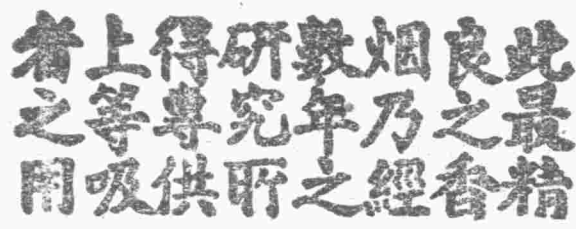 此最精
良之香
烟乃經
數年之
研究所
得專供
上等吸
者之用